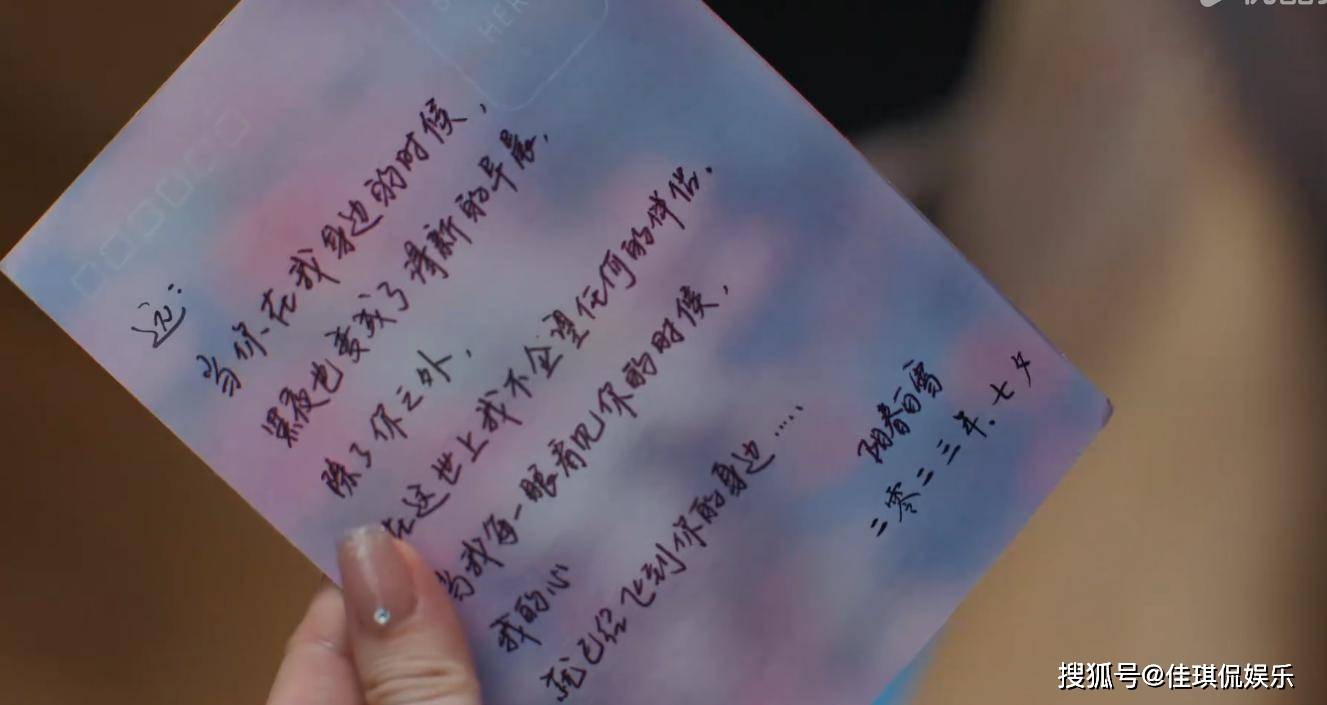 HER
远：
当你在我身边的时候，
黑夜也变成了清新的早晨，
除了你之外，
在这世上我不企望任何的伴侣．
当我每一眼看见你的时候，
我的心
就已经飞到你的身边……
阳春白雪
二零二三年．七夕
搜狐号@佳琪侃娱乐